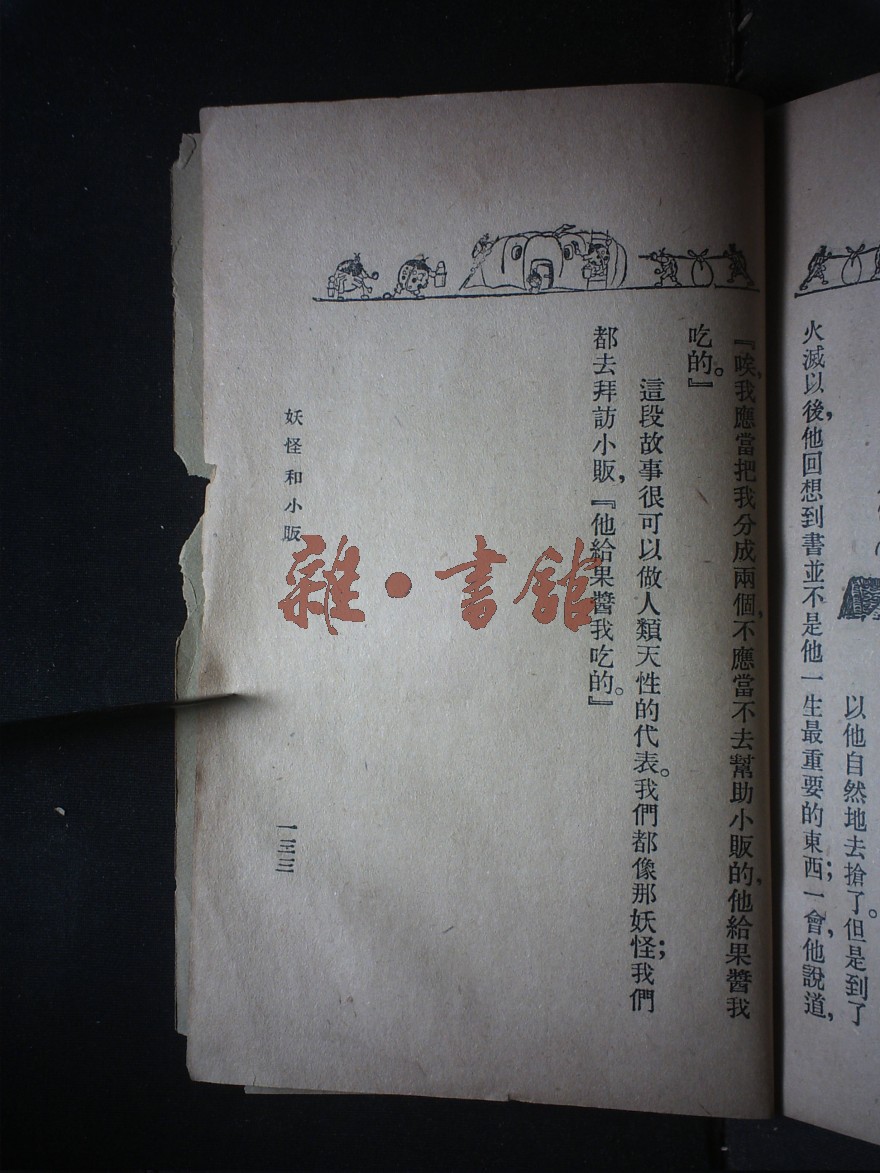 以他自然地去搶了。但是到了
火滅以後，他回想到書並不是他一生最重要的東西；一會，他說道，
『唉，我應當把我分成兩個，不應當不去幫助小販的，他給果醬我
吃的。』
這段故事很可以做人類天性的代表。我們都像那妖怪；我們
都去拜訪小販，『他給果醬我吃的。』
妖怪和小販
一三三
雜·書館